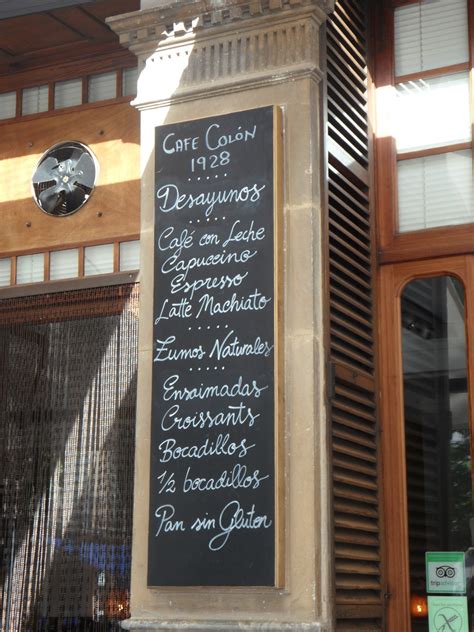 CAFE COLÓN
1928
Desayunos
Café con Leche
Capuccino
Espresso
Latte Machiato
Zumos Naturales
Ensaimadas
Croissants
Bocadillos
1/2 bocadillos
Pan sin Gluten
tripadvisor